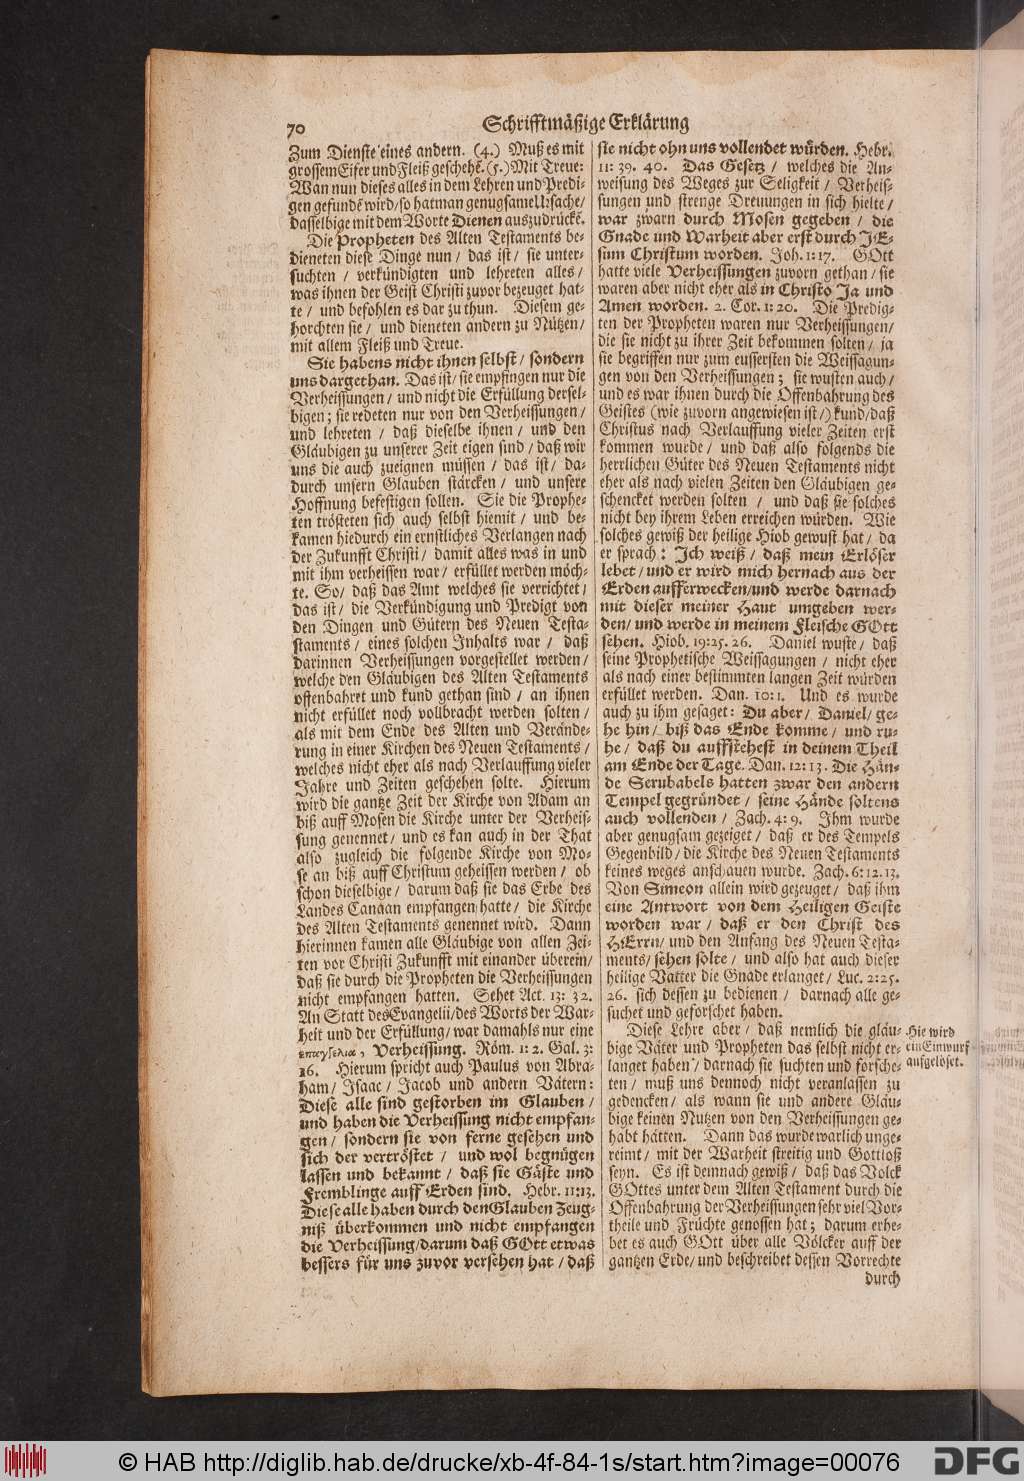 70
Schrifftmäßige Erklärung
Zum Dienste eines andern. (4.) Muß es mit
grossem Eifer und Fleiß geschehē. (5.) Mit Treue:
Wan nun dieses alles in dem Lehren und Predi-
gen gefundē wird/ so hat man genugsame Ursache/
dasselbige mit dem Worte Dienen auszudrückē.
Die Propheten des Alten Testaments be-
dieneten diese Dinge nun / das ist / sie unter-
suchten / verkündigten und lehreten alles /
was ihnen der Geist Christi zuvor bezeuget hat-
te / und befohlen es dar zu thun. Diesem ge-
horchten sie / und dieneten andern zu Nützen /
mit allem Fleiß und Treue.
Sie habens nicht ihnen selbst / sondern
uns dargethan. Das ist / sie empfingen nur die
Verheissungen / und nicht die Erfüllung dersel-
bigen; sie redeten nur von den Verheissungen /
und lehreten / daß dieselbe ihnen / und den
Gläubigen zu unserer Zeit eigen sind / daß wir
uns die auch zueignen müssen / das ist / da-
durch unsern Glauben stärcken / und unsere
Hoffnung befestigen sollen. Sie die Prophe-
ten trösteten sich auch selbst hiemit / und be-
kamen hiedurch ein ernstliches Verlangen nach
der Zukunfft Christi / damit alles was in und
mit ihm verheissen war / erfüllet werden möch-
te. So / daß das Amt welches sie verrichtet /
das ist / die Verkündigung und Predigt von
den Dingen und Gütern des Neuen Testa-
staments / eines solchen Inhalts war / daß
darinnen Verheissungen vorgestellet werden /
welche den Gläubigen des Alten Testaments
offenbahret und kund gethan sind / an ihnen
nicht erfüllet noch vollbracht werden solten /
als mit dem Ende des Alten und Verände-
rung in einer Kirchen des Neuen Testaments /
welches nicht eher als nach Verlauffung vieler
Jahre und Zeiten geschehen solte. Hierum
wird die gantze Zeit der Kirche von Adam an
biß auff Mosen die Kirche unter der Verheis-
sung genennet / und es kan auch in der That
also zugleich die folgende Kirche von Mo-
se an biß auff Christum geheissen werden / ob
schon dieselbige / darum daß sie das Erbe des
Landes Canaan empfangen hatte / die Kirche
des Alten Testaments genennet wird. Dann
hierinnen kamen alle Gläubige von allen Zei-
ten vor Christi Zukunfft mit einander überein /
daß sie durch die Propheten die Verheissungen
nicht empfangen hatten. Sehet Act. 13: 32.
An Statt des Evangelii / des Worts der War-
heit und der Erfüllung / war damahls nur eine
επαγγελια, Verheissung. Röm. 1: 2. Gal. 3:
16. Hierum spricht auch Paulus von Abra-
ham / Isaac / Jacob und andern Vätern:
Diese alle sind gestorben im Glauben /
und haben die Verheissung nicht empfan-
gen / sondern sie von ferne gesehen und
sich der vertröstet / und wol begnügen
lassen und bekannt / daß sie Gäste und
Fremblinge auff Erden sind. Hebr. 11: 13.
Diese alle haben durch den Glauben Zeug-
niß überkommen und nicht empfangen
die Verheissung / darum daß GOtt etwas
bessers für uns zuvor versehen hat / daß
sie nicht ohn uns vollendet würden. Hebr.
11: 39. 40. Das Gesetz / welches die An-
weisung des Weges zur Seligkeit / Verheis-
sungen und strenge Dreuungen in sich hielte /
war zwarn durch Mosen gegeben / die
Gnade und Warheit aber erst durch JE-
sum Christum worden. Joh. 1: 17. GOtt
hatte viele Verheissungen zuvorn gethan / sie
waren aber nicht eher als in Christo Ja und
Amen worden. 2. Cor. 1: 20. Die Predig-
ten der Propheten waren nur Verheissungen /
die sie nicht zu ihrer Zeit bekommen solten / ja
sie begriffen nur zum eussersten die Weissagun-
gen von den Verheissungen; sie wusten auch /
und es war ihnen durch die Offenbahrung des
Geistes (wie zuvorn angewiesen ist /) kund / daß
Christus nach Verlauffung vieler Zeiten erst
kommen wurde / und daß also folgends die
herrlichen Güter des Neuen Testaments nicht
eher als nach vielen Zeiten den Gläubigen ge-
schencket werden solten / und daß sie solches
nicht bey ihrem Leben erreichen würden. Wie
solches gewiß der heilige Hiob gewust hat / da
er sprach: Ich weiß / daß mein Erlöser
lebet / und er wird mich hernach aus der
Erden aufferwecken / und werde darnach
mit dieser meiner Haut umgeben wer-
den / und werde in meinem Fleische GOtt
sehen. Hiob. 19: 25. 26. Daniel wuste / daß
seine Prophetische Weissagungen / nicht eher
als nach einer bestimmten langen Zeit würden
erfüllet werden. Dan. 10: 1. Und es wurde
auch zu ihm gesaget: Du aber / Daniel / ge-
he hin / biß das Ende komme / und ru-
he / daß du auffstehest in deinem Theil
am Ende der Tage. Dan. 12: 13. Die Hän-
de Serubabels hatten zwar den andern
Tempel gegründet / seine Hände soltens
auch vollenden / Zach. 4: 9. Ihm wurde
aber genugsam gezeiget / daß er des Tempels
Gegenbild / die Kirche des Neuen Testaments
keines weges anschauen wurde. Zach. 6: 12. 13.
Von Simeon allein wird gezeuget / daß ihm
eine Antwort von dem Heiligen Geiste
worden war / daß er den Christ des
HErrn / und den Anfang des Neuen Testa-
ments / sehen solte / und also hat auch dieser
heilige Vatter die Gnade erlanget / Luc. 2: 25.
26. sich dessen zu bedienen / darnach alle ge-
suchet und geforschet haben.
Diese Lehre aber / daß nemlich die gläu-
bige Väter und Propheten das selbst nicht er-
langet haben / darnach sie suchten und forsche-
ten / muß uns dennoch nicht veranlassen zu
gedencken / als wann sie und andere Gläu-
bige keinen Nutzen von den Verheissungen ge-
habt hätten. Dann das wurde warlich unge-
reimt / mit der Warheit streitig und Gottloß
seyn. Es ist demnach gewiß / daß das Volck
GOttes unter dem Alten Testament durch die
Offenbahrung der Verheissungen sehr viel Vor-
theile und Früchte genossen hat; darum erhe-
bet es auch GOtt über alle Völcker auff der
gantzen Erde / und beschreibet dessen Vorrechte
durch
Hie wird
ein Einwurf
aufgelöset.
© HAB http://diglib.hab.de/drucke/xb-4f-84-1s/start.htm?image=00076
DFG